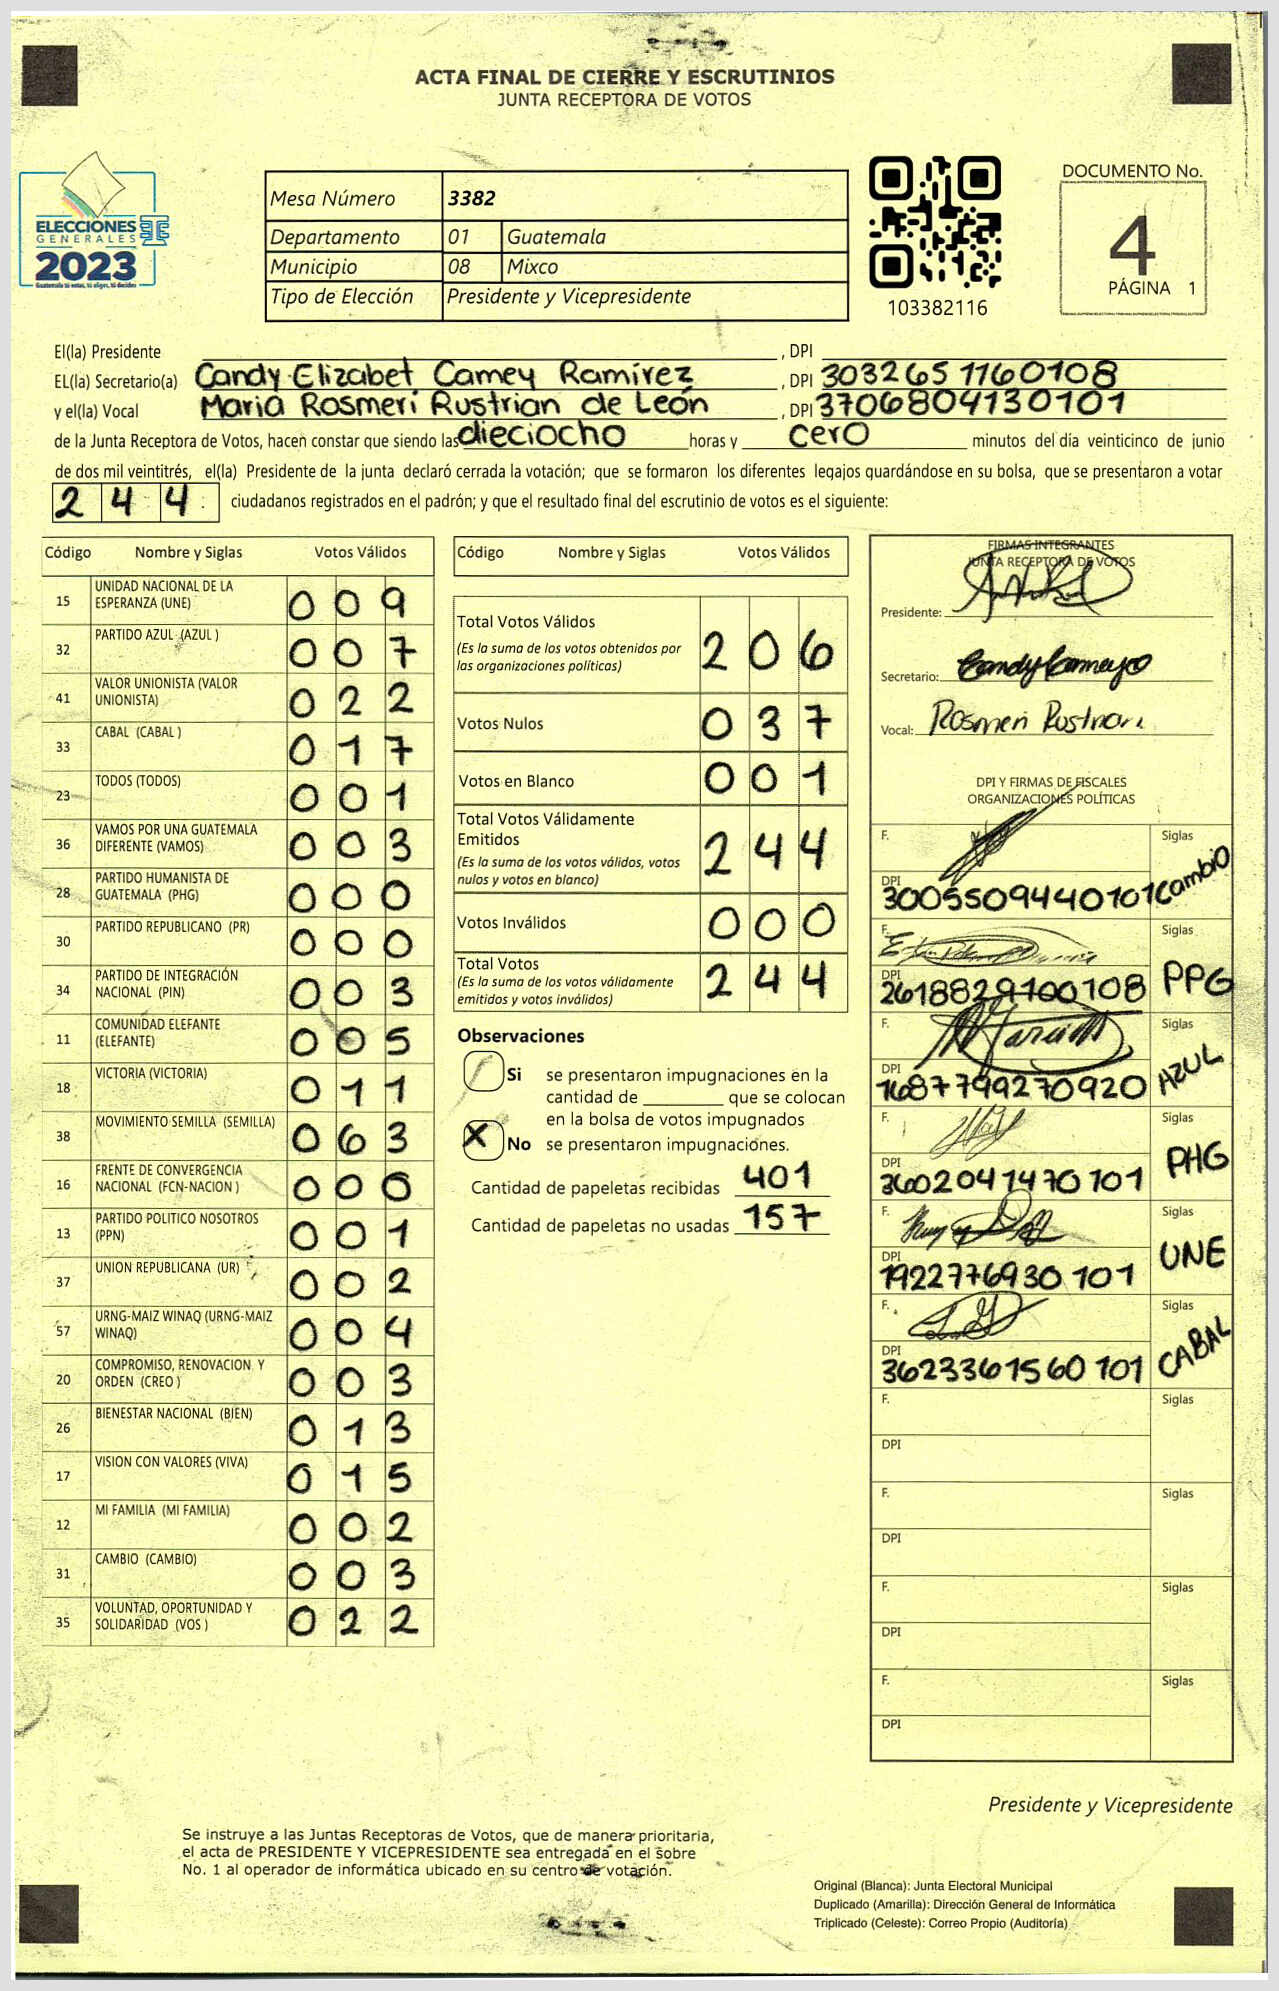 ACTA FINAL DE CIERRE Y ESCRUTINIOS
JUNTA RECEPTORA DE VOTOS
ELECCIONES
GENERALES
2023
Guatemala tú votas, tú eliges, tú decides
Mesa Número 3382
Departamento 01 Guatemala
Municipio 08 Mixco
Tipo de Elección Presidente y Vicepresidente
103382116
DOCUMENTO No.
4
PÁGINA 1
El(la) Presidente , DPI
EL(la) Secretario(a) Candy Elizabet Camey Ramírez , DPI 3032651160108
y el(la) Vocal Maria Rosmeri Rustrian de León , DPI 3706804130101
de la Junta Receptora de Votos, hacen constar que siendo las dieciocho horas y cero minutos del día veinticinco de junio
de dos mil veintitrés, el(la) Presidente de la junta declaró cerrada la votación; que se formaron los diferentes legajos guardándose en su bolsa, que se presentaron a votar
244 ciudadanos registrados en el padrón; y que el resultado final del escrutinio de votos es el siguiente:
Código Nombre y Siglas Votos Válidos
15 UNIDAD NACIONAL DE LA ESPERANZA (UNE) 009
32 PARTIDO AZUL (AZUL ) 007
41 VALOR UNIONISTA (VALOR UNIONISTA) 022
33 CABAL (CABAL ) 017
23 TODOS (TODOS) 001
36 VAMOS POR UNA GUATEMALA DIFERENTE (VAMOS) 003
28 PARTIDO HUMANISTA DE GUATEMALA (PHG) 000
30 PARTIDO REPUBLICANO (PR) 000
34 PARTIDO DE INTEGRACIÓN NACIONAL (PIN) 003
11 COMUNIDAD ELEFANTE (ELEFANTE) 005
18 VICTORIA (VICTORIA) 011
38 MOVIMIENTO SEMILLA (SEMILLA) 063
16 FRENTE DE CONVERGENCIA NACIONAL (FCN-NACION ) 000
13 PARTIDO POLITICO NOSOTROS (PPN) 001
37 UNION REPUBLICANA (UR) 002
57 URNG-MAIZ WINAQ (URNG-MAIZ WINAQ) 004
20 COMPROMISO, RENOVACION Y ORDEN (CREO ) 003
26 BIENESTAR NACIONAL (BIEN) 013
17 VISION CON VALORES (VIVA) 015
12 MI FAMILIA (MI FAMILIA) 002
31 CAMBIO (CAMBIO) 003
35 VOLUNTAD, OPORTUNIDAD Y SOLIDARIDAD (VOS ) 022
Código Nombre y Siglas Votos Válidos
Total Votos Válidos 206
(Es la suma de los votos obtenidos por
las organizaciones políticas)
Votos Nulos 037
Votos en Blanco 001
Total Votos Válidamente
Emitidos 244
(Es la suma de los votos válidos, votos
nulos y votos en blanco)
Votos Inválidos 000
Total Votos 244
(Es la suma de los votos válidamente
emitidos y votos inválidos)
Observaciones
Si se presentaron impugnaciones en la
cantidad de ________ que se colocan
en la bolsa de votos impugnados
X No se presentaron impugnaciones.
Cantidad de papeletas recibidas 401
Cantidad de papeletas no usadas 157
FIRMAS INTEGRANTES
JUNTA RECEPTORA DE VOTOS
Presidente:
Secretario: Candy Camey
Vocal: Rosmeri Rustrian
DPI Y FIRMAS DE FISCALES
ORGANIZACIONES POLÍTICAS
F. Siglas
DPI 3005509440101 Cambio
F. Siglas
DPI 2618829100108 PPG
F. Siglas
DPI 1687799270920 AZUL
F. Siglas
DPI 3602041470101 PHG
F. Siglas
DPI 1922776930101 UNE
F. Siglas
DPI 3623361560101 CABAL
F. Siglas
DPI
F. Siglas
DPI
F. Siglas
DPI
F. Siglas
DPI
Presidente y Vicepresidente
Se instruye a las Juntas Receptoras de Votos, que de manera prioritaria,
el acta de PRESIDENTE Y VICEPRESIDENTE sea entregada en el sobre
No. 1 al operador de informática ubicado en su centro de votación.
Original (Blanca): Junta Electoral Municipal
Duplicado (Amarilla): Dirección General de Informática
Triplicado (Celeste): Correo Propio (Auditoría)